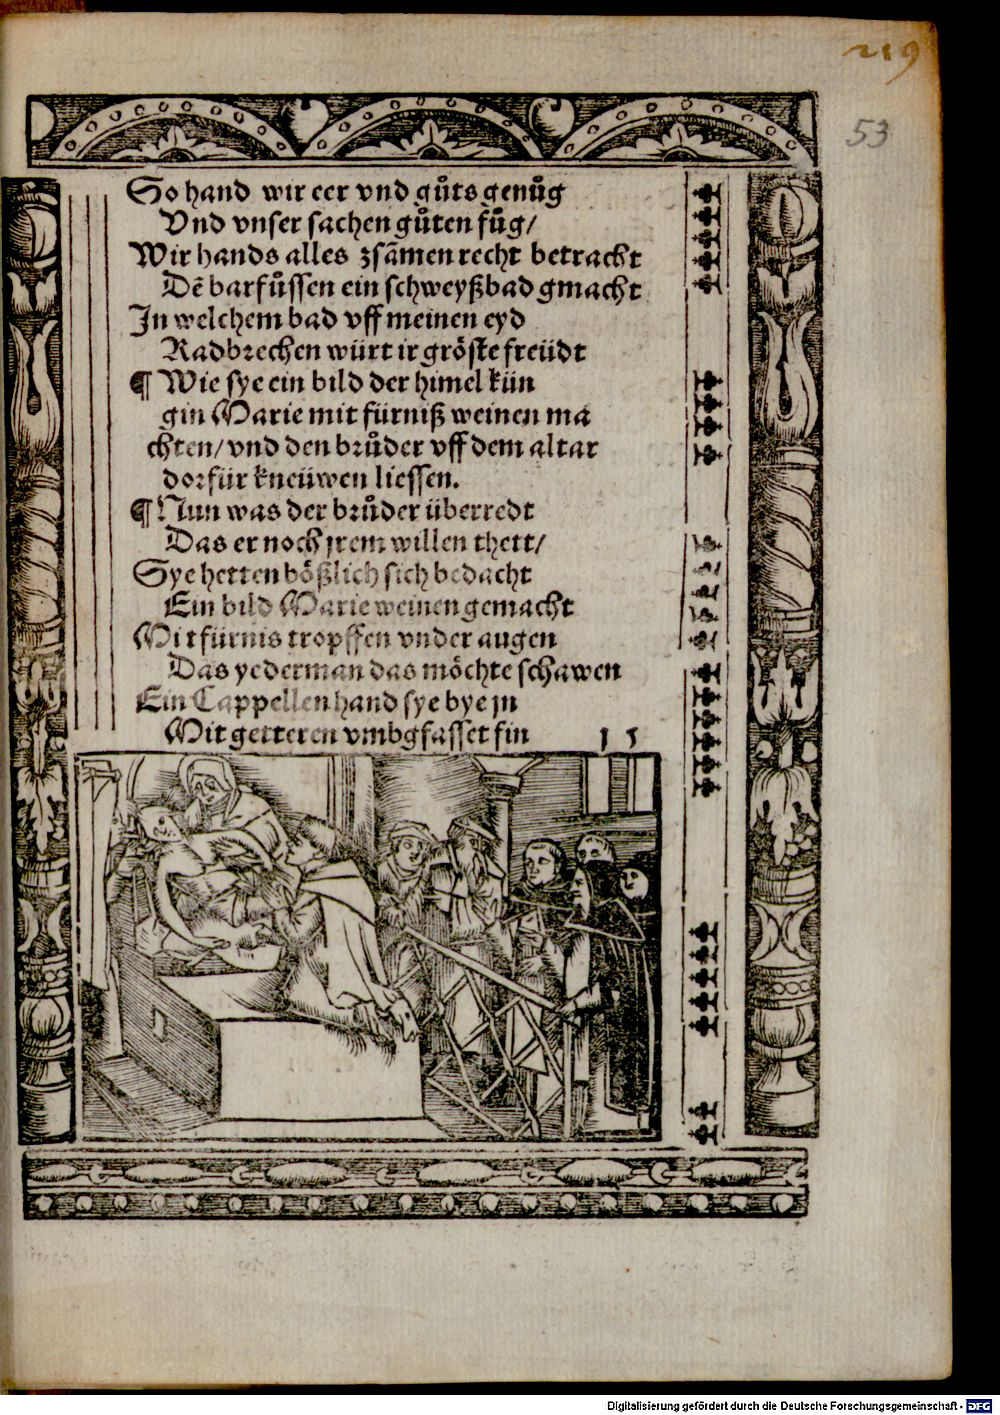 219
53
So hand wir eer vnd gůts genůg
Vnd vnser sachen gůten fůg/
Wir hands alles zsāmen recht betracht
Dē barfůssen ein schweyßbad gmacht
In welchem bad vff meinen eyd
Radbrechen würt ir gröste freüdt
¶ Wie sye ein bild der himel kün
gin Marie mit fürniß weinen ma
chten/ vnd den brůder vff dem altar
dorfür kneüwen liessen.
¶ Nun was der brůder überredt
Das er noch jrem willen thett/
Sye hetten bößlich sich bedacht
Ein bild Marie weinen gemacht
Mit fürnis tropffen vnder augen
Das yederman das möchte schawen
Ein Cappellen hand sye bye jn
Mit getteren vmbgfasset fin 15
Digitalisierung gefördert durch die Deutsche Forschungsgemeinschaft - DFG